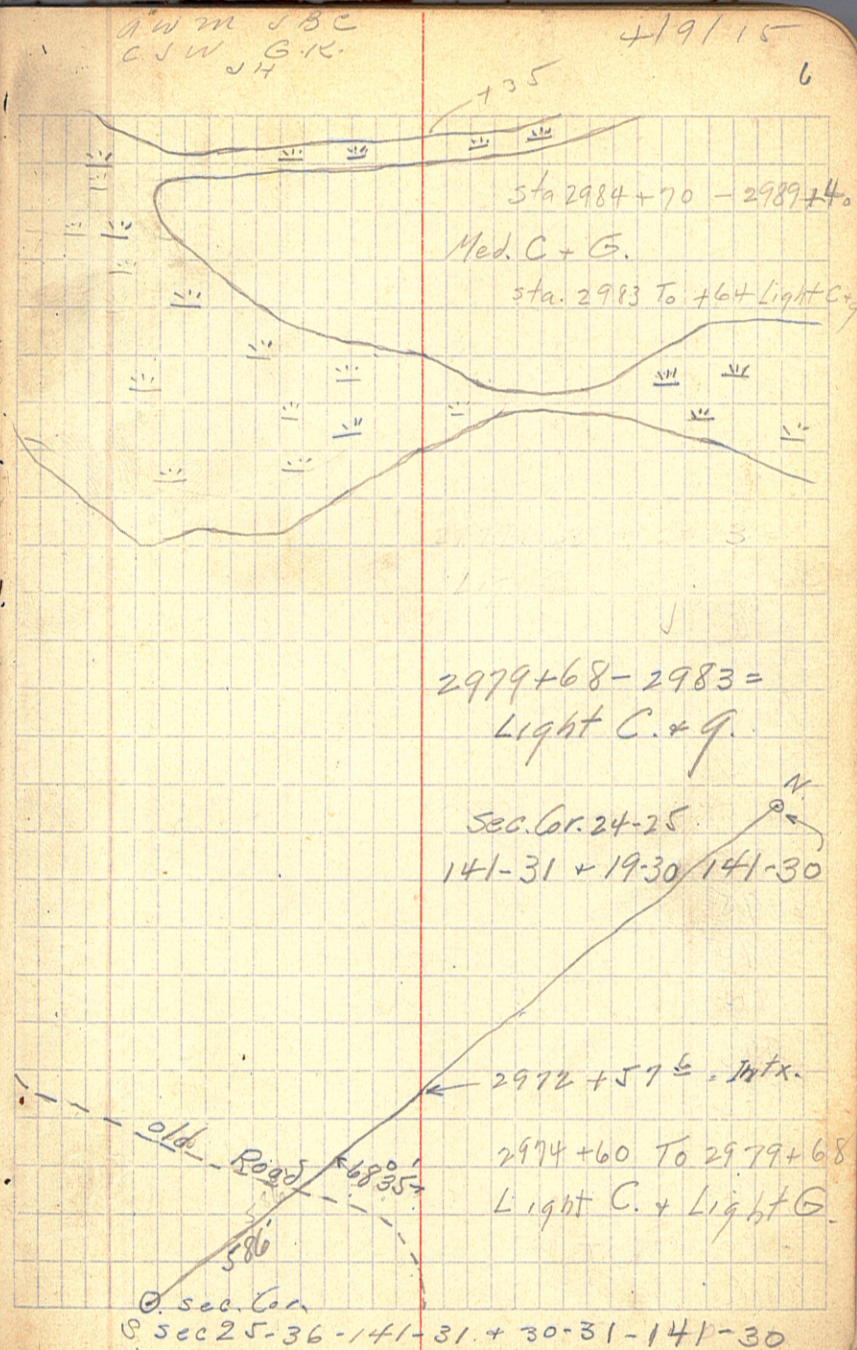 C J W G.K.
4/9/15
6
+35
sta 2984+70 - 2989+40
Med. C + G.
sta. 2983 To +64 Light C+g
2979+68 - 2983 =
Light C. + g.
N
Sec. Cor. 24-25
141-31 + 19-30 141-30
2972 + 57 6 = Intx.
old Road
68°35'
2974+60 To 2979+68
Light C. + Light G.
586'
sec. Cor.
S sec 25-36-141-31 + 30-31-141-30